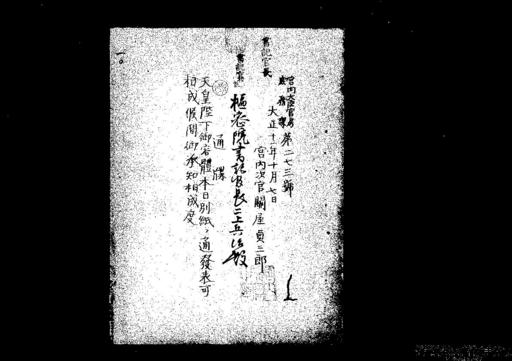 書記官長
書記官
宮内大臣官房
庶務課 第二七三號
大正十一年十月七日
宮内次官關屋貞三郎
樞密院書記官長二上兵治殿
通牒
天皇陛下御容體本日別紙ノ通發表可
相成候間御承知相成度